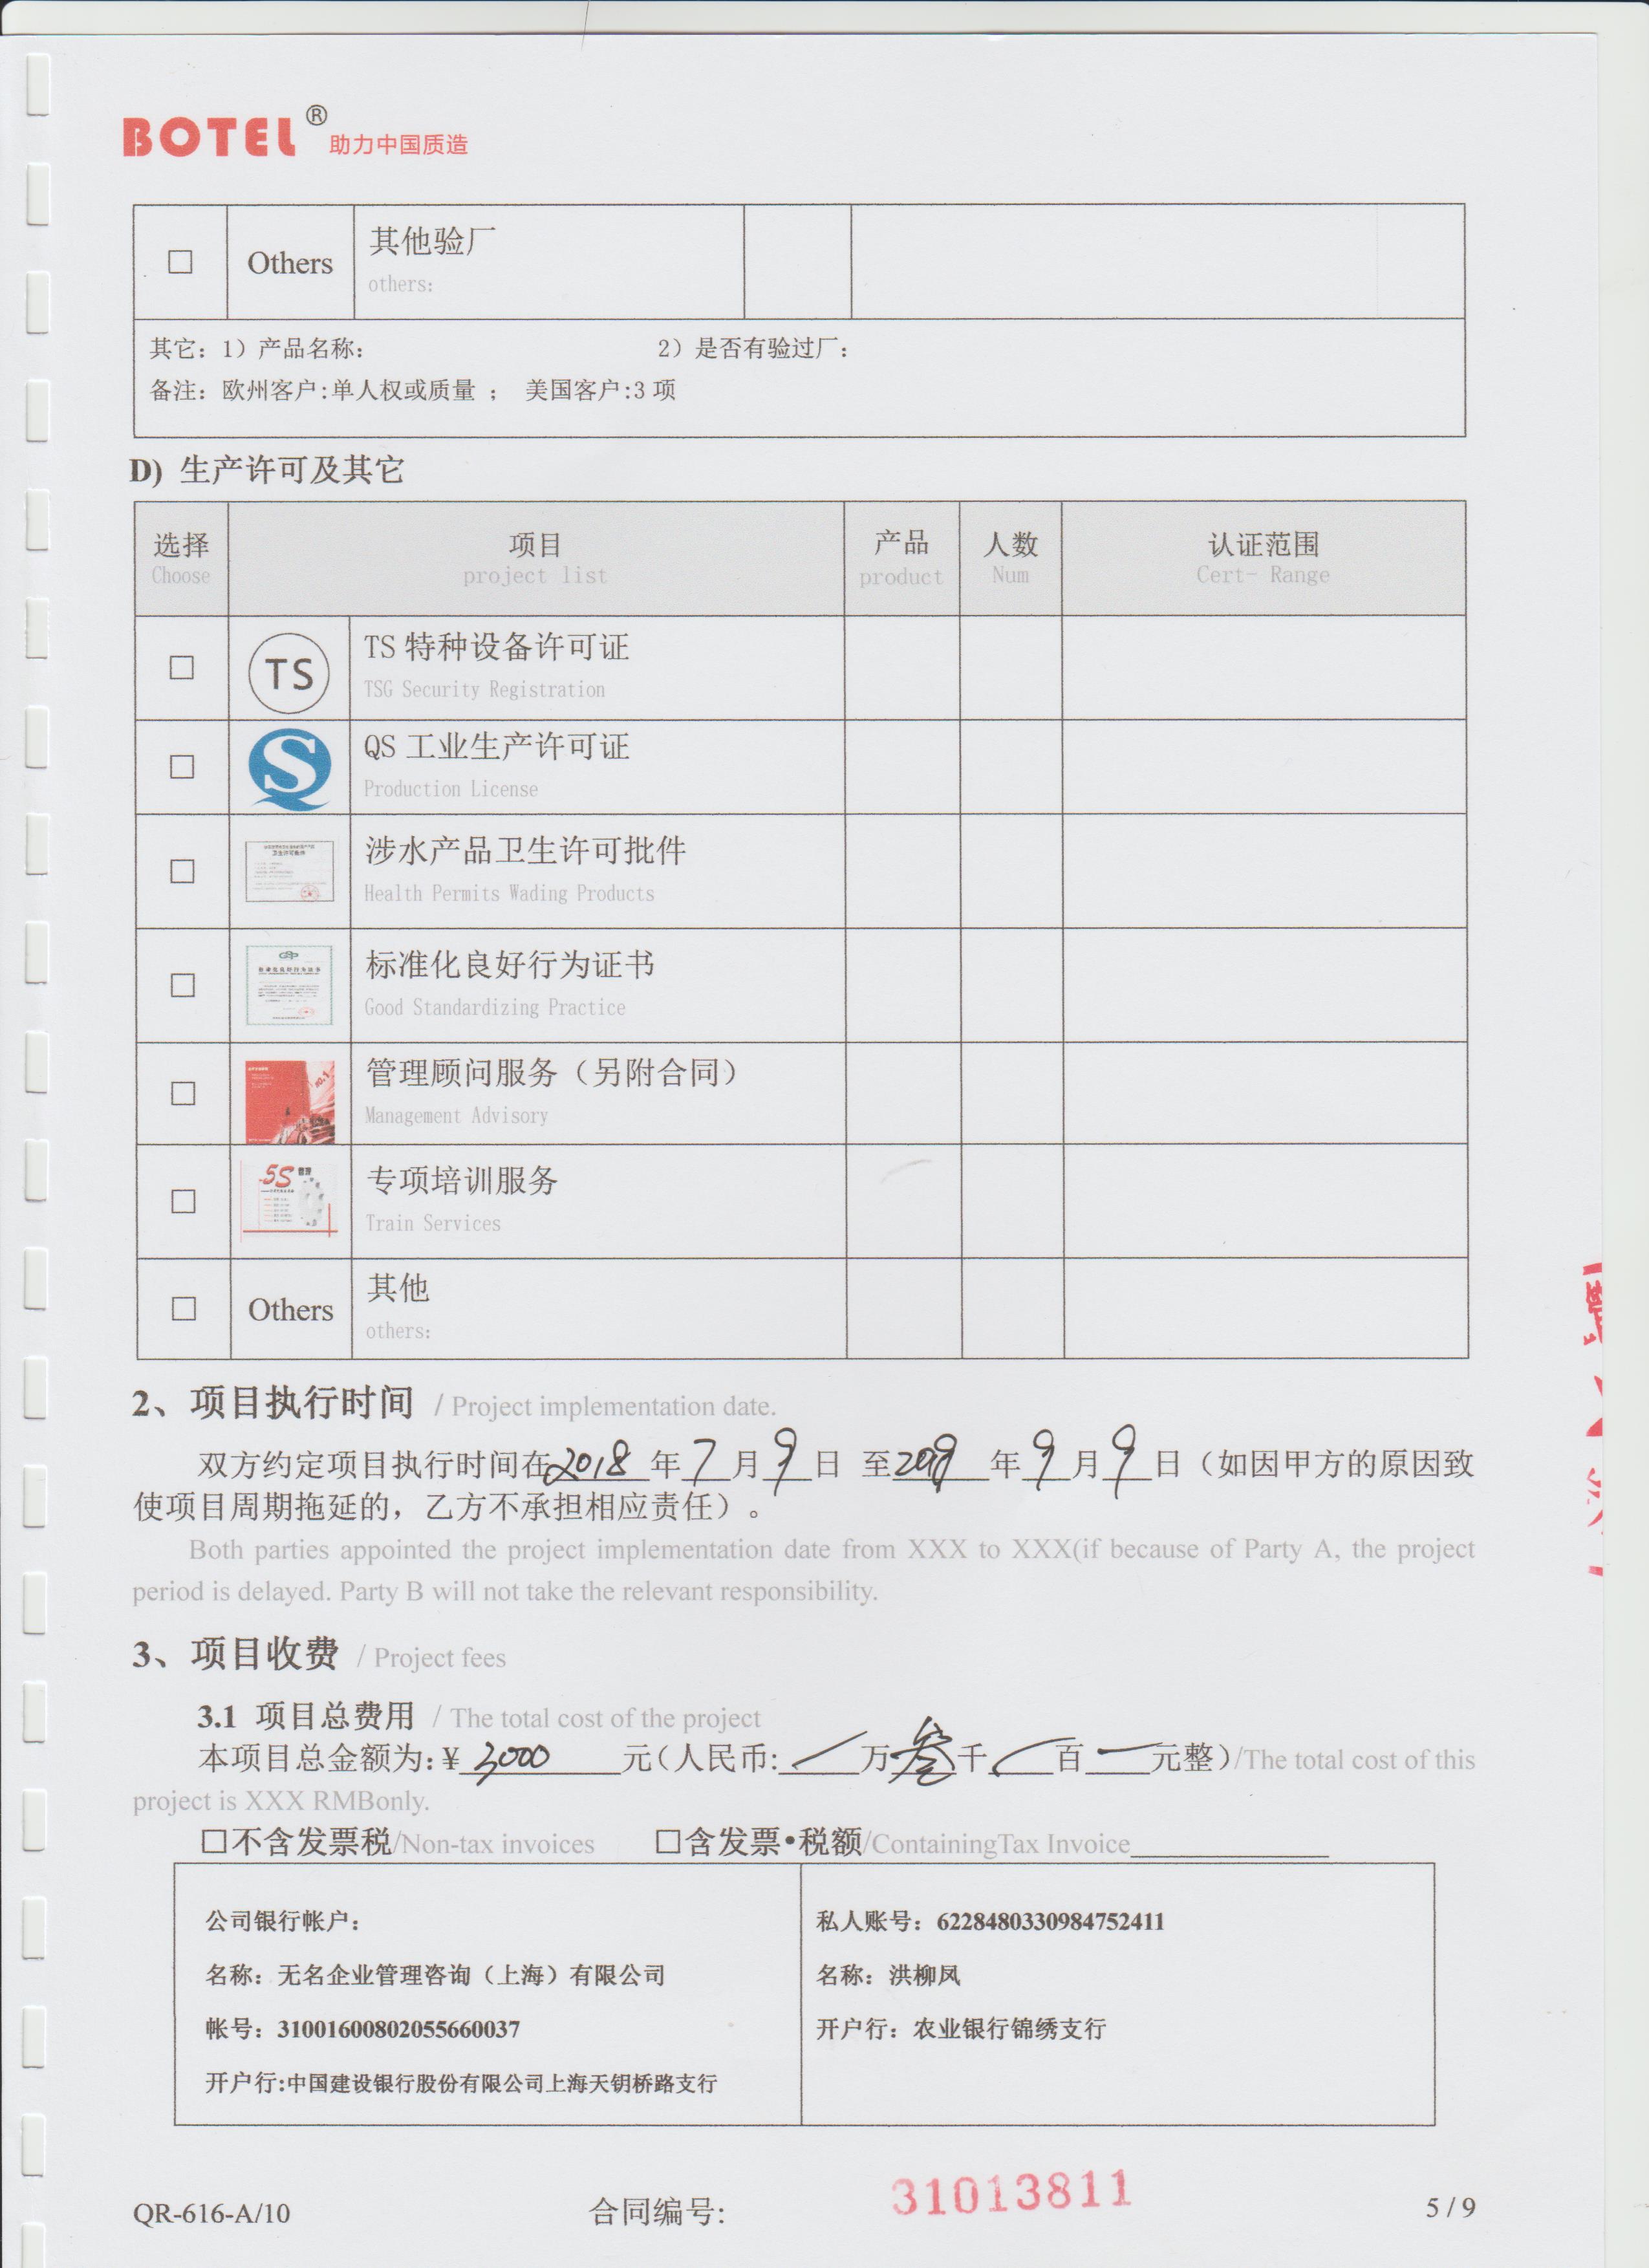 BOTEL® 助力中国质造
□ Others 其他验厂
others:
其它: 1) 产品名称: 2) 是否有验过厂:
备注: 欧州客户:单人权或质量 ; 美国客户:3 项
D) 生产许可及其它
选择 项目 产品 人数 认证范围
Choose project list product Num Cert- Range
□ TS TS 特种设备许可证
TSG Security Registration
□ QS 工业生产许可证
Production License
□ 涉水产品卫生许可批件
Health Permits Wading Products
□ 标准化良好行为证书
Good Standardizing Practice
□ 管理顾问服务（另附合同）
Management Advisory
□ 5S 专项培训服务
Train Services
□ Others 其他
others:
2、项目执行时间 / Project implementation date.
双方约定项目执行时间在2018 年7月9日 至 年9月9日（如因甲方的原因致
使项目周期拖延的，乙方不承担相应责任）。
Both parties appointed the project implementation date from XXX to XXX(if because of Party A, the project
period is delayed. Party B will not take the relevant responsibility.
3、项目收费 / Project fees
3.1 项目总费用 / The total cost of the project
本项目总金额为:¥ 3000 元(人民币: / 万叁千 / 百 一 元整)/The total cost of this
project is XXX RMBonly.
□不含发票税/Non-tax invoices □含发票•税额/ContainingTax Invoice
公司银行帐户:
名称: 无名企业管理咨询（上海）有限公司
帐号: 31001600802055660037
开户行:中国建设银行股份有限公司上海天钥桥路支行
私人账号: 6228480330984752411
名称: 洪柳凤
开户行: 农业银行锦绣支行
QR-616-A/10 合同编号: 31013811 5 / 9